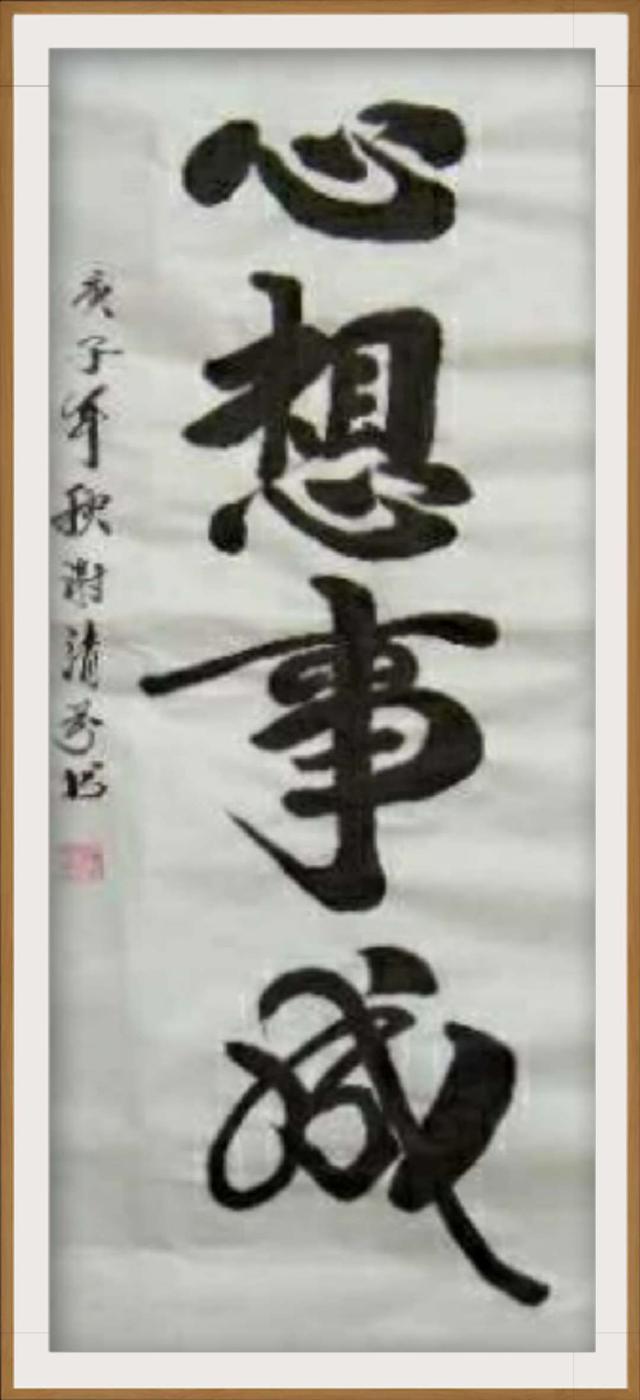 心想事成
庚子年秋谢清芬书